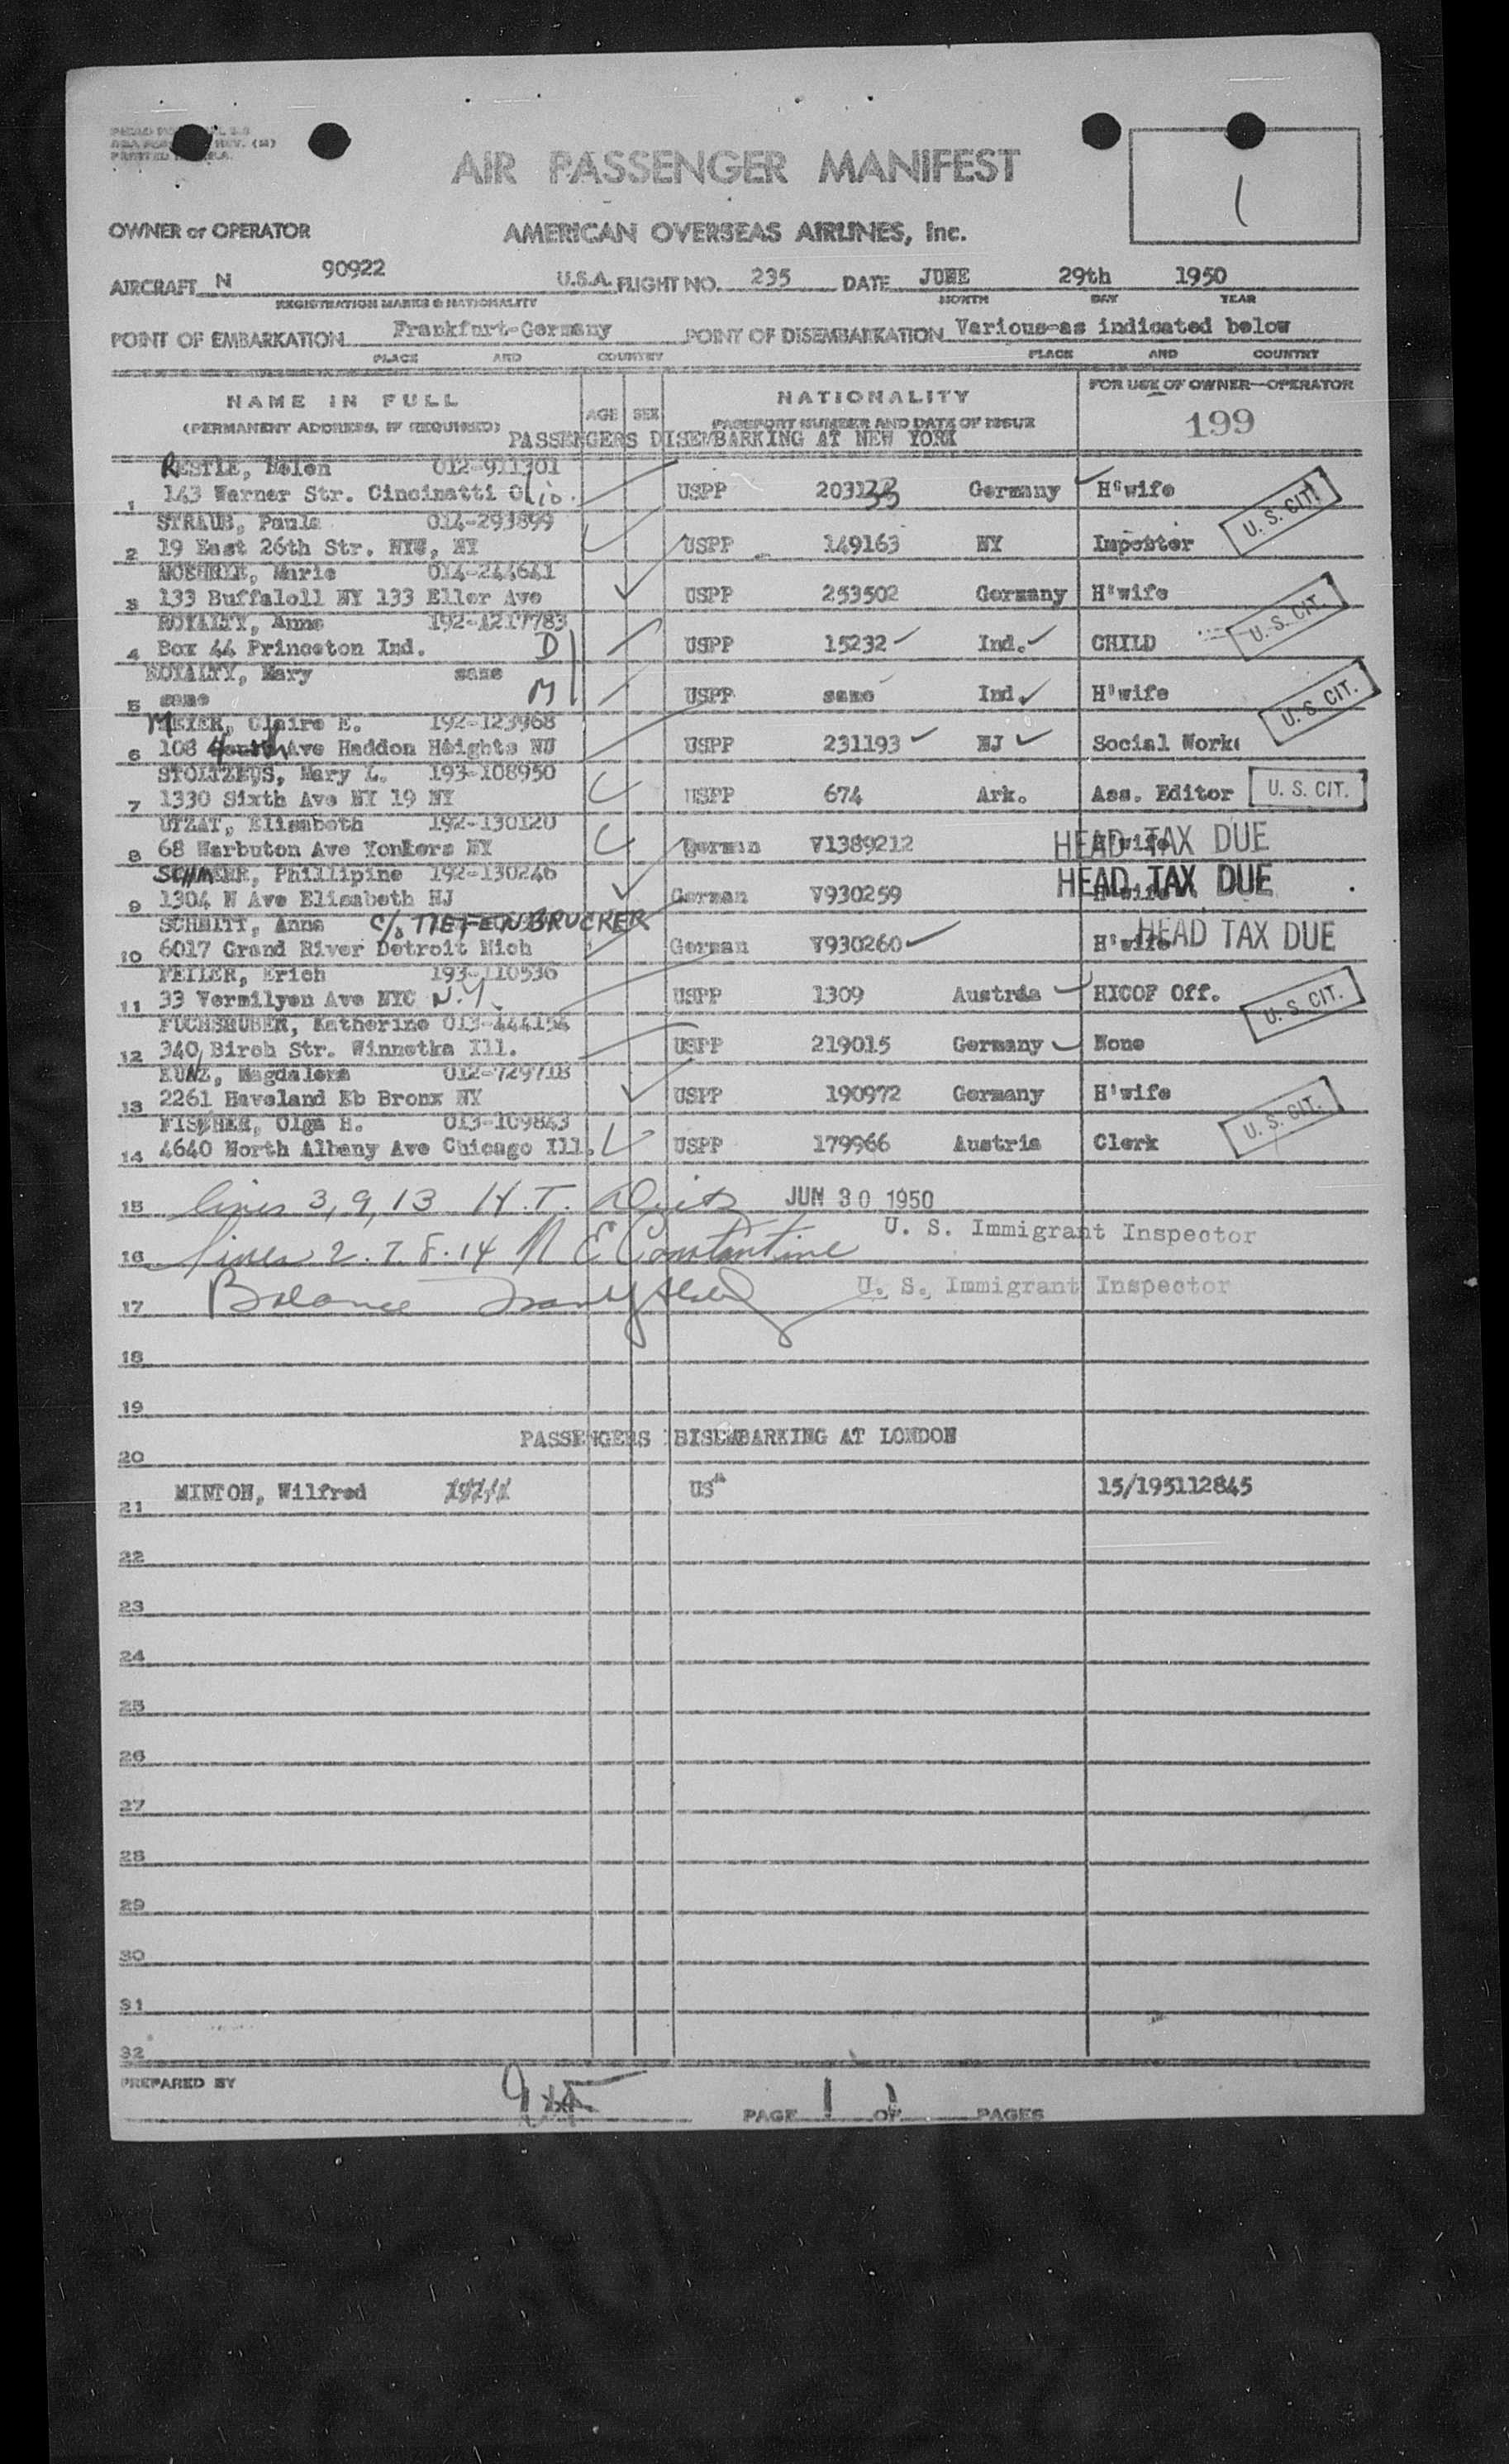 AIR PASSENGER MANIFEST
1
OWNER or OPERATOR AMERICAN OVERSEAS AIRLINES, Inc.
AIRCRAFT N 90922 U.S.A. FLIGHT NO. 235 DATE JUNE 29th 1950
REGISTRATION MARKS & NATIONALITY MONTH DAY YEAR
POINT OF EMBARKATION Frankfurt-Germany POINT OF DISEMBARKATION Various-as indicated below
PLACE AND COUNTRY PLACE AND COUNTRY
NAME IN FULL AGE SEX NATIONALITY FOR USE OF OWNER-OPERATOR
(PERMANENT ADDRESS, IF REQUIRED) PASSPORT NUMBER AND DATE OF ISSUE 199
PASSENGERS DISEMBARKING AT NEW YORK
RESTLE, Helen 012-911301
1 143 Warner Str. Cincinatti Ohio. USPP Germany H'wife U. S. CIT.
STRAUB, Paula 014-293899
2 19 East 26th Str. NYC, NY USPP 149163 NY Imposter
Marie 014-244641
3 133 Buffaloll NY 133 Eller Ave USPP 253502 Germany H'wife
ROYALTY, Anne 192-1217783
4 Box 44 Princeton Ind. D USPP 15232 Ind. CHILD U. S. CIT.
ROYALTY, Mary same
5 same M USPP same Ind. H'wife U. S. CIT.
MEIER, Claire E. 192-123968
6 108 Fourth Ave Haddon Heights NJ USPP 231193 NJ Social Work
STOLTZFUS, Mary L. 193-108950
7 1330 Sixth Ave NY 19 NY USPP 674 Ark. Ass. Editor U. S. CIT.
UTZAT, Elisabeth 192-130120
8 68 Warbuton Ave Yonkers NY German V1389212 H'wife HEAD TAX DUE
Phillipine 192-130246
9 1304 N Ave Elisabeth NJ German V930259 H'wife HEAD TAX DUE
SCHMITT, Anna c/o TIEFENBRUCKER
10 6017 Grand River Detroit Mich German V930260 H'wife HEAD TAX DUE
FEILER, Erich 193-110536
11 33 Vermilyen Ave NYC N.Y. USPP 1309 Austria HICOF Off. U. S. CIT.
FUCHSHUBER, Katherine 013-444154
12 340 Birch Str. Winnetka Ill. USPP 219015 Germany None
KUNZ, Magdalena 012-729718
13 2261 Haveland Eb Bronx NY USPP 190972 Germany H'wife
FISCHER, Olga H. 013-109843
14 4640 North Albany Ave Chicago Ill. USPP 179966 Austria Clerk U. S. CIT.
15 lines 3, 9, 13 H.T. JUN 30 1950
U. S. Immigrant Inspector
16 lines 2. 7. 8. 14 N E Constantine
17 Balance U. S. Immigrant Inspector
18
19
PASSENGERS DISEMBARKING AT LONDON
20
21 MINTON, Wilfred US 15/195112845
22
23
24
25
26
27
28
29
30
31
32
PREPARED BY
PAGE 1 OF 1 PAGES